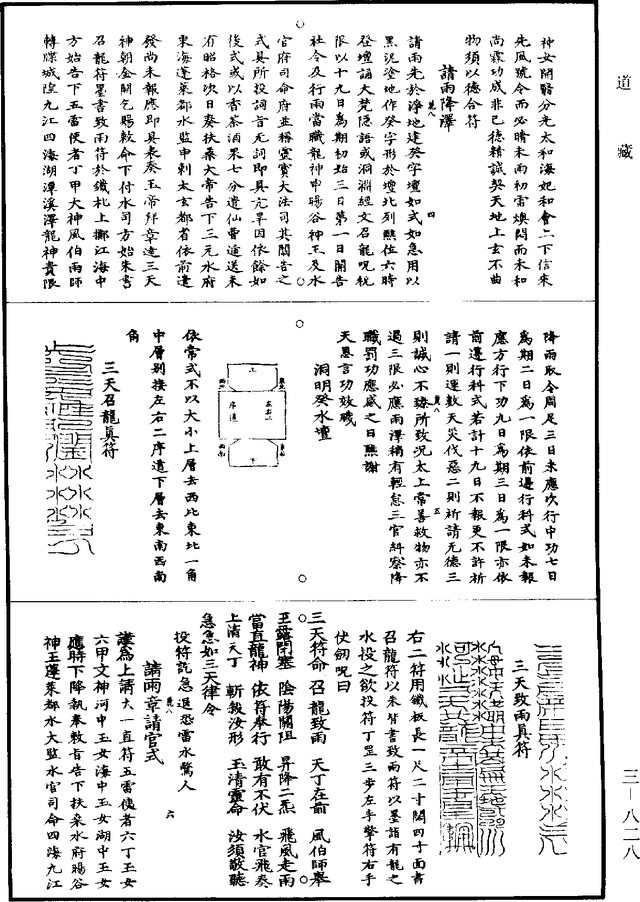 道藏
神女開醫分光太和海妃和會二下信來
先風號令而必晴未雨初雷燠悶而未和
尚霖功成非已德精誠契天地上玄不曲
物須以德合符
請雨降澤
請雨先於淨地建癸字壇如式如急用以
黑泥塗地作癸字形於壇北列醮位六時
登壇誦大梵隱語或洞淵經文召龍呪祝
限以十九日為期初始三日第一日關告
社令及行雨當職龍神申暘谷神王及水
官府司命府並稱靈寶大法司其關告之
式具所投詞首无詞即具亢旱因依餘如
後式或以香茶酒果七分遣仙曹遞送未
有昭格次日奏扶桑大帝告下三元水府
東海蓬萊都水監申刺太玄都省依前遣
發尚未報應即具表奏玉帝拜章達三天
神朝金闕乞賜敕命下付水司方始朱書
召龍符墨書致雨符於鐵札上擲江海中
方始告下五雷使者丁甲大神風伯雨師
轉牒城隍九江四海湖潭溪澤龍神責限
降雨取令周足三日未應次行中功七日
為期二日為一限依前遣行科式如未報
應方行下功九日為期三日為一限亦依
前遣行科式若計十九日不報更不許祈
請一則運數天災伐惡二則祈請无德三
則誠心不臻所致況太上常善救物亦不
過三限必應雨澤稍有輕怠三官糾察降
職罰功應感之日醮謝
天恩言功效職
洞明癸水壇
依常式不以大小上層去西北東北一角
中層別接左右二序道下層去東南西南
角
三天召龍真符
三天致雨真符
右二符用鐵板長一尺二寸闊四寸面書
召龍符以朱背書致雨符以墨詣有龍之
水投之欲投符丁罡三步左手擎符右手
仗劒呪曰
三天符命 召龍致雨 天丁在前 風伯師舉
霊露閉塞 陰陽關阻 昇降二炁 飛風走雨
當直龍神 依符奉行 敢有不伏 水官飛奏
上清天丁 斬馘汝形 玉清靈命 汝須敬聽
急急如三天律令
投符訖急退恐雷水驚人
請雨章請官式
謹為上請太一直符五雷使者六丁玉女
六甲文神河中玉女海中玉女湖中玉女
應時下降執奉敷旨告下扶桑水府暘谷
神王蓬萊都水大監水官司命四海九江
三－八二八